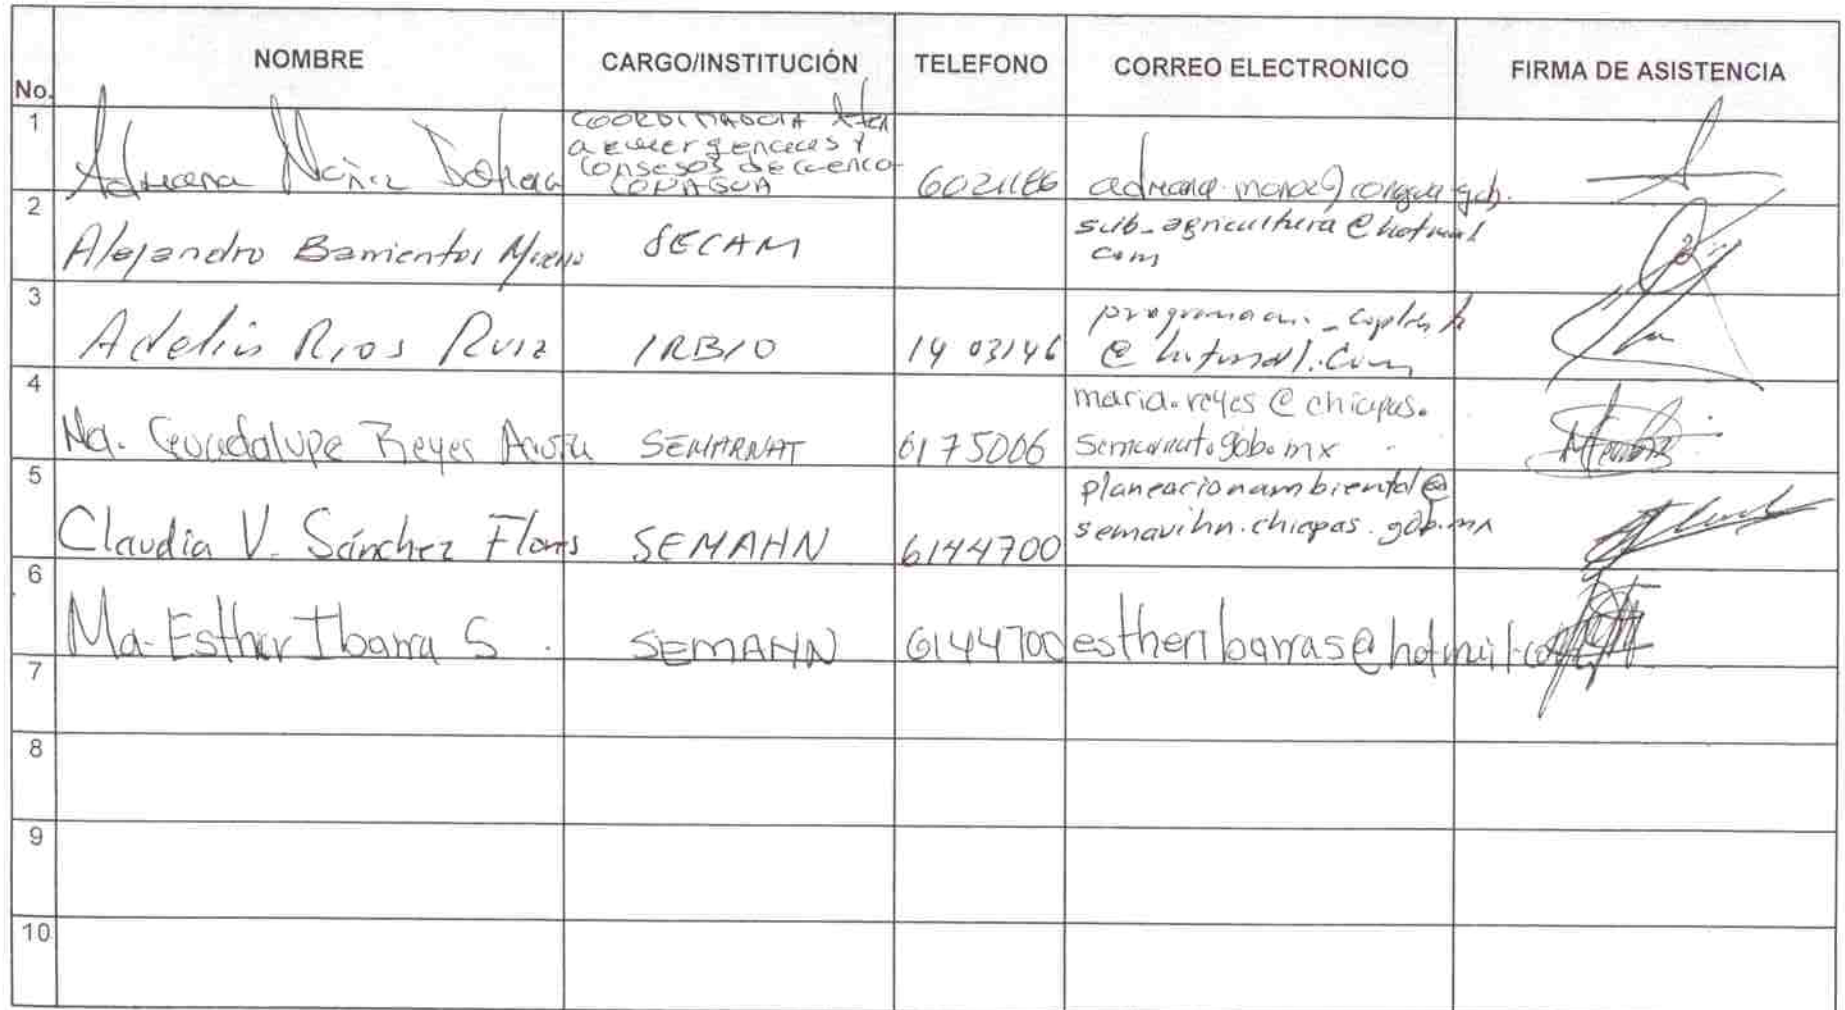 NOMBRE CARGO/INSTITUCIÓN TELEFONO CORREO ELECTRONICO FIRMA DE ASISTENCIA
No.
1
Adriana
COORDINADORA
a emergencias y
consejos de cuenca
CONAGUA
2
Alejandro Barrientos Moreno SECAM sub_agricultura@hotmail
com
3
Adelín Rios Ruiz IRBIO 14 03146
@hotmail.com
4
Ma. Guadalupe Reyes SEMARNAT 6175006 maria.reyes@chiapas.
semarnat.gob.mx
5
Claudia V. Sánchez Flores SEMAHN 6144700 planeacionambiental@
semavihn.chiapas.gob.mx
6
Ma. Esther Ibarra S. SEMAHN 6144700 estheribarras@hotmail.com
7
8
9
10